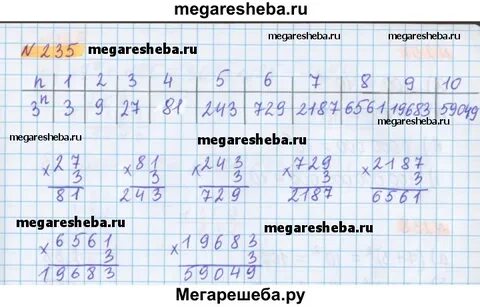 megaresheba.ru
N 235 megaresheba.ru megaresheba.ru
n 1 2 3 4 5 6 7 8 9 10
3ⁿ 3 9 27 81 243 729 2187 6561 19683 59049
megaresheba.ru megaresheba.ru megaresheba.ru
×27 ×81 ×243 ×729 ×2187
3 3 3 3 3
81 243 729 2187 6561
megaresheba.ru megaresheba.ru
×6561 ×19683
3 3
19683 59049
Мегарешеба.ру